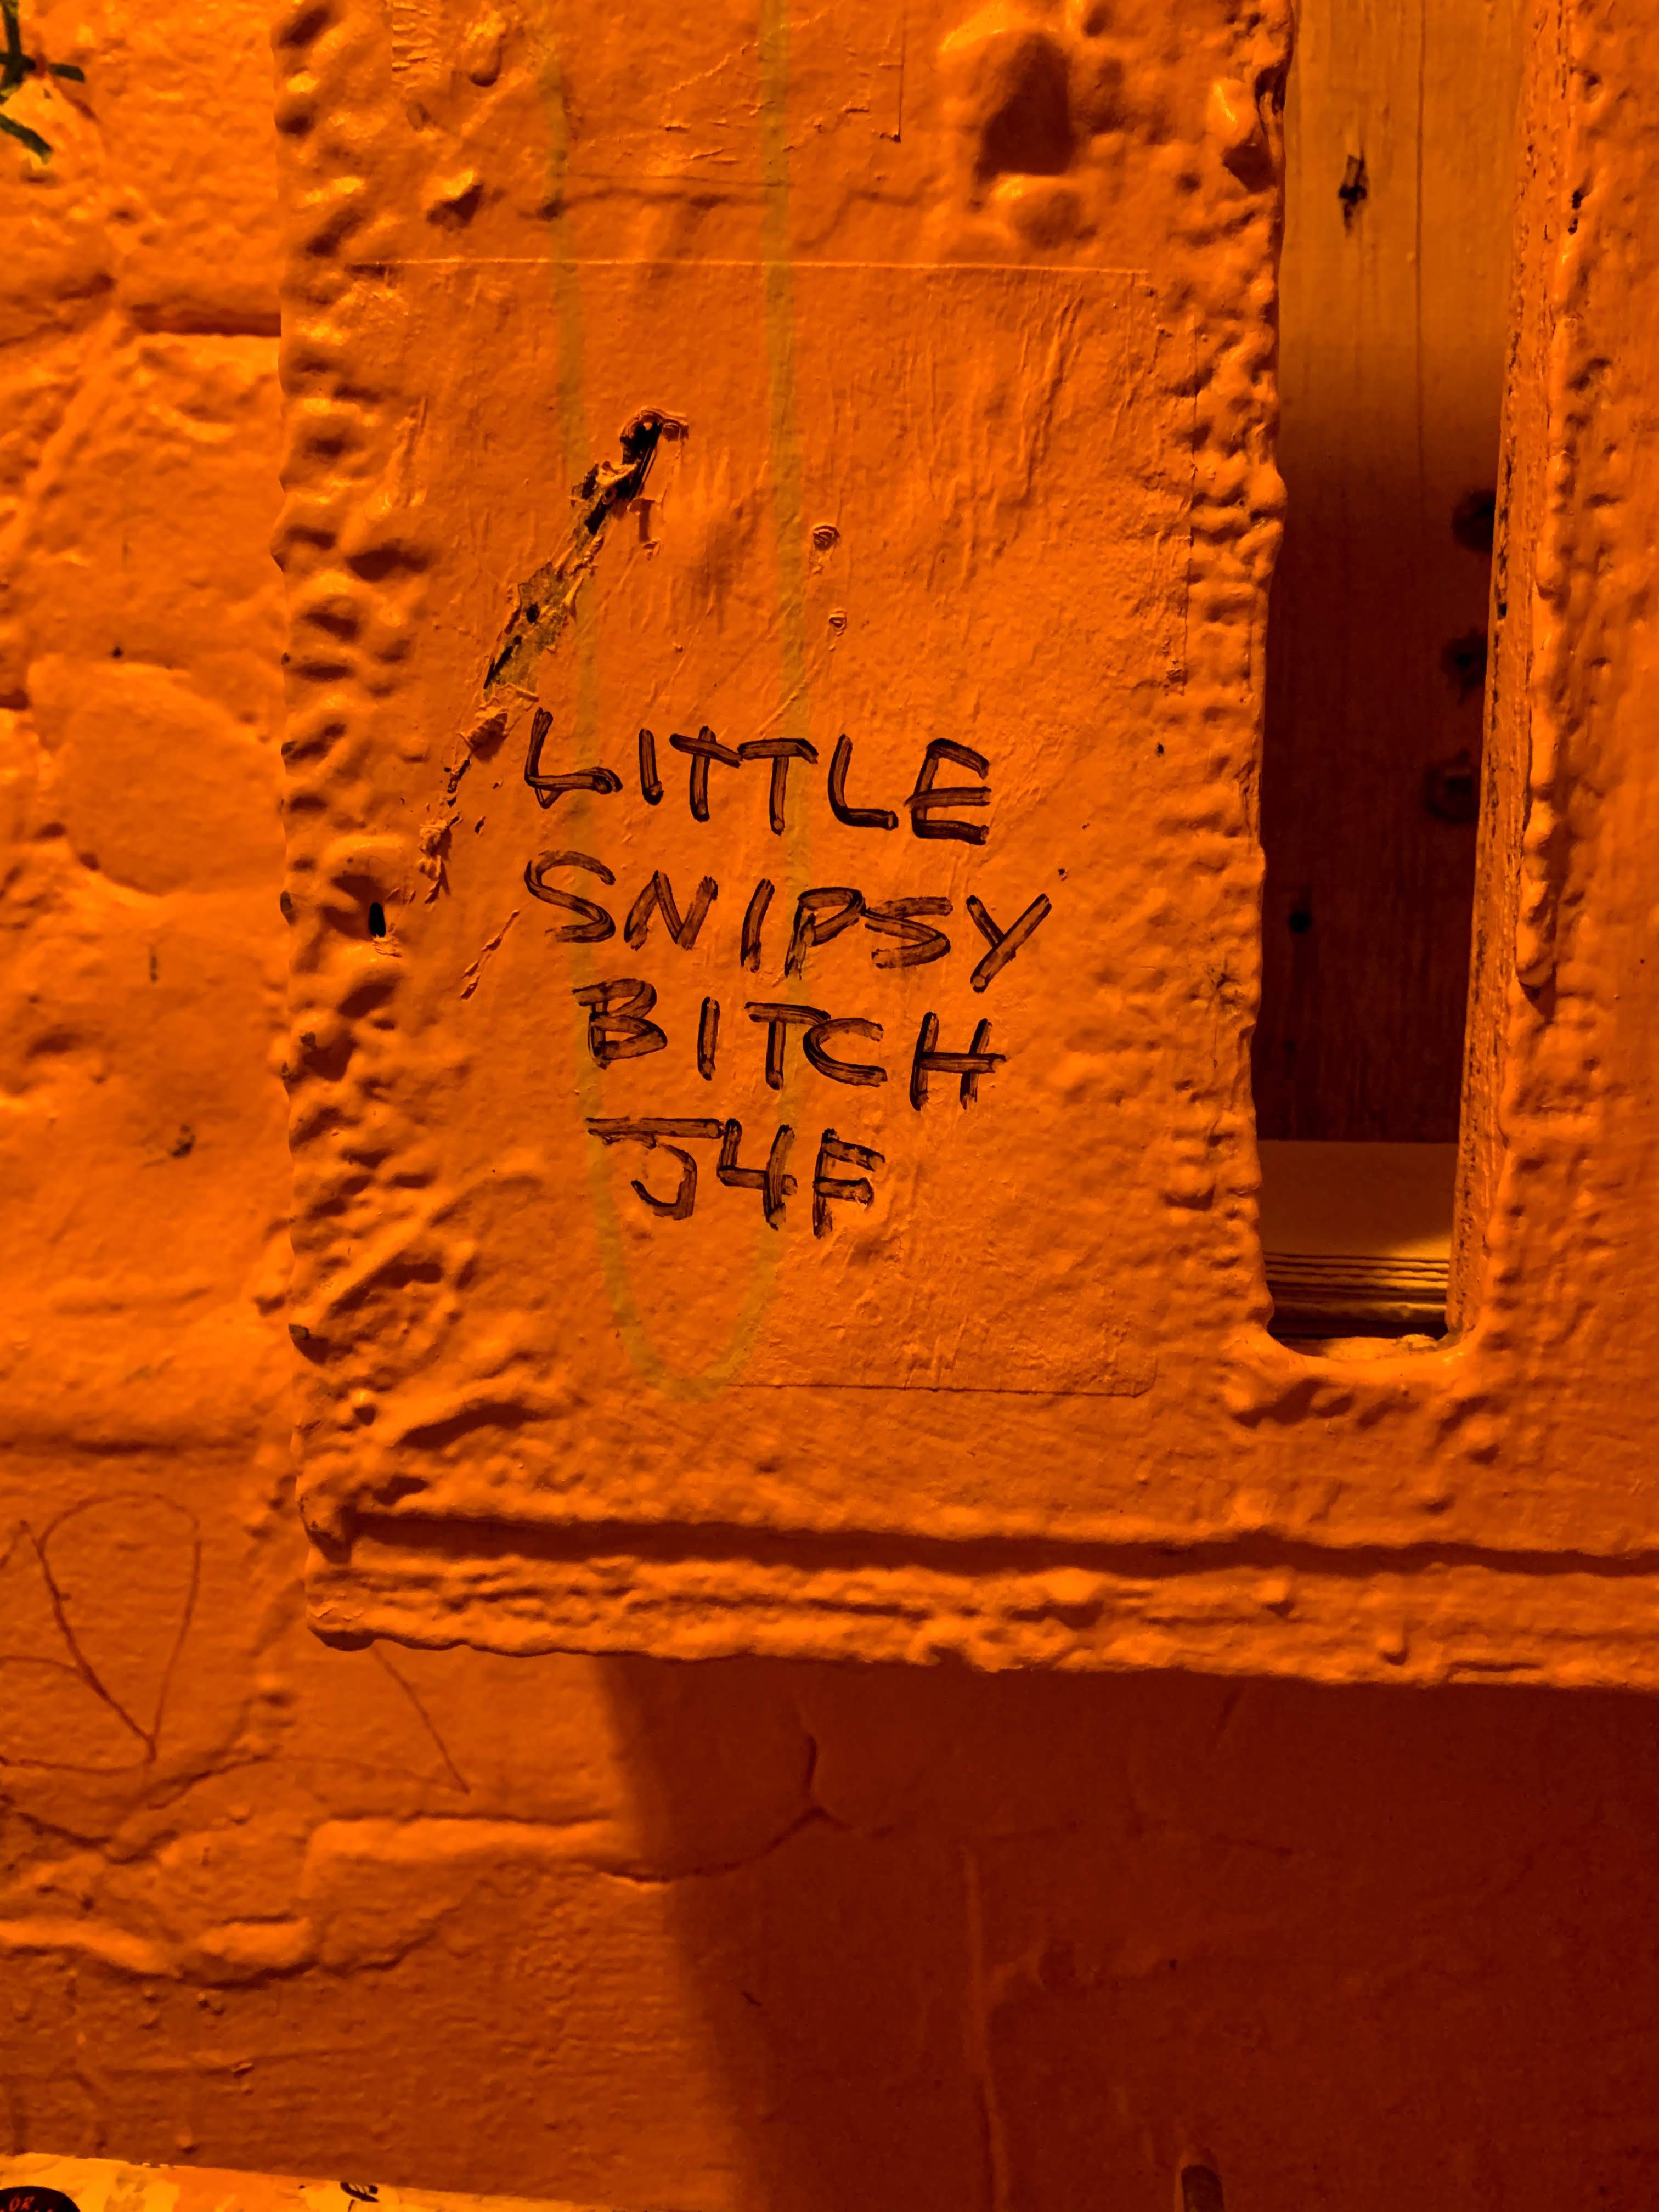 LITTLE
SNIPSY
BITCH
J4F
OR